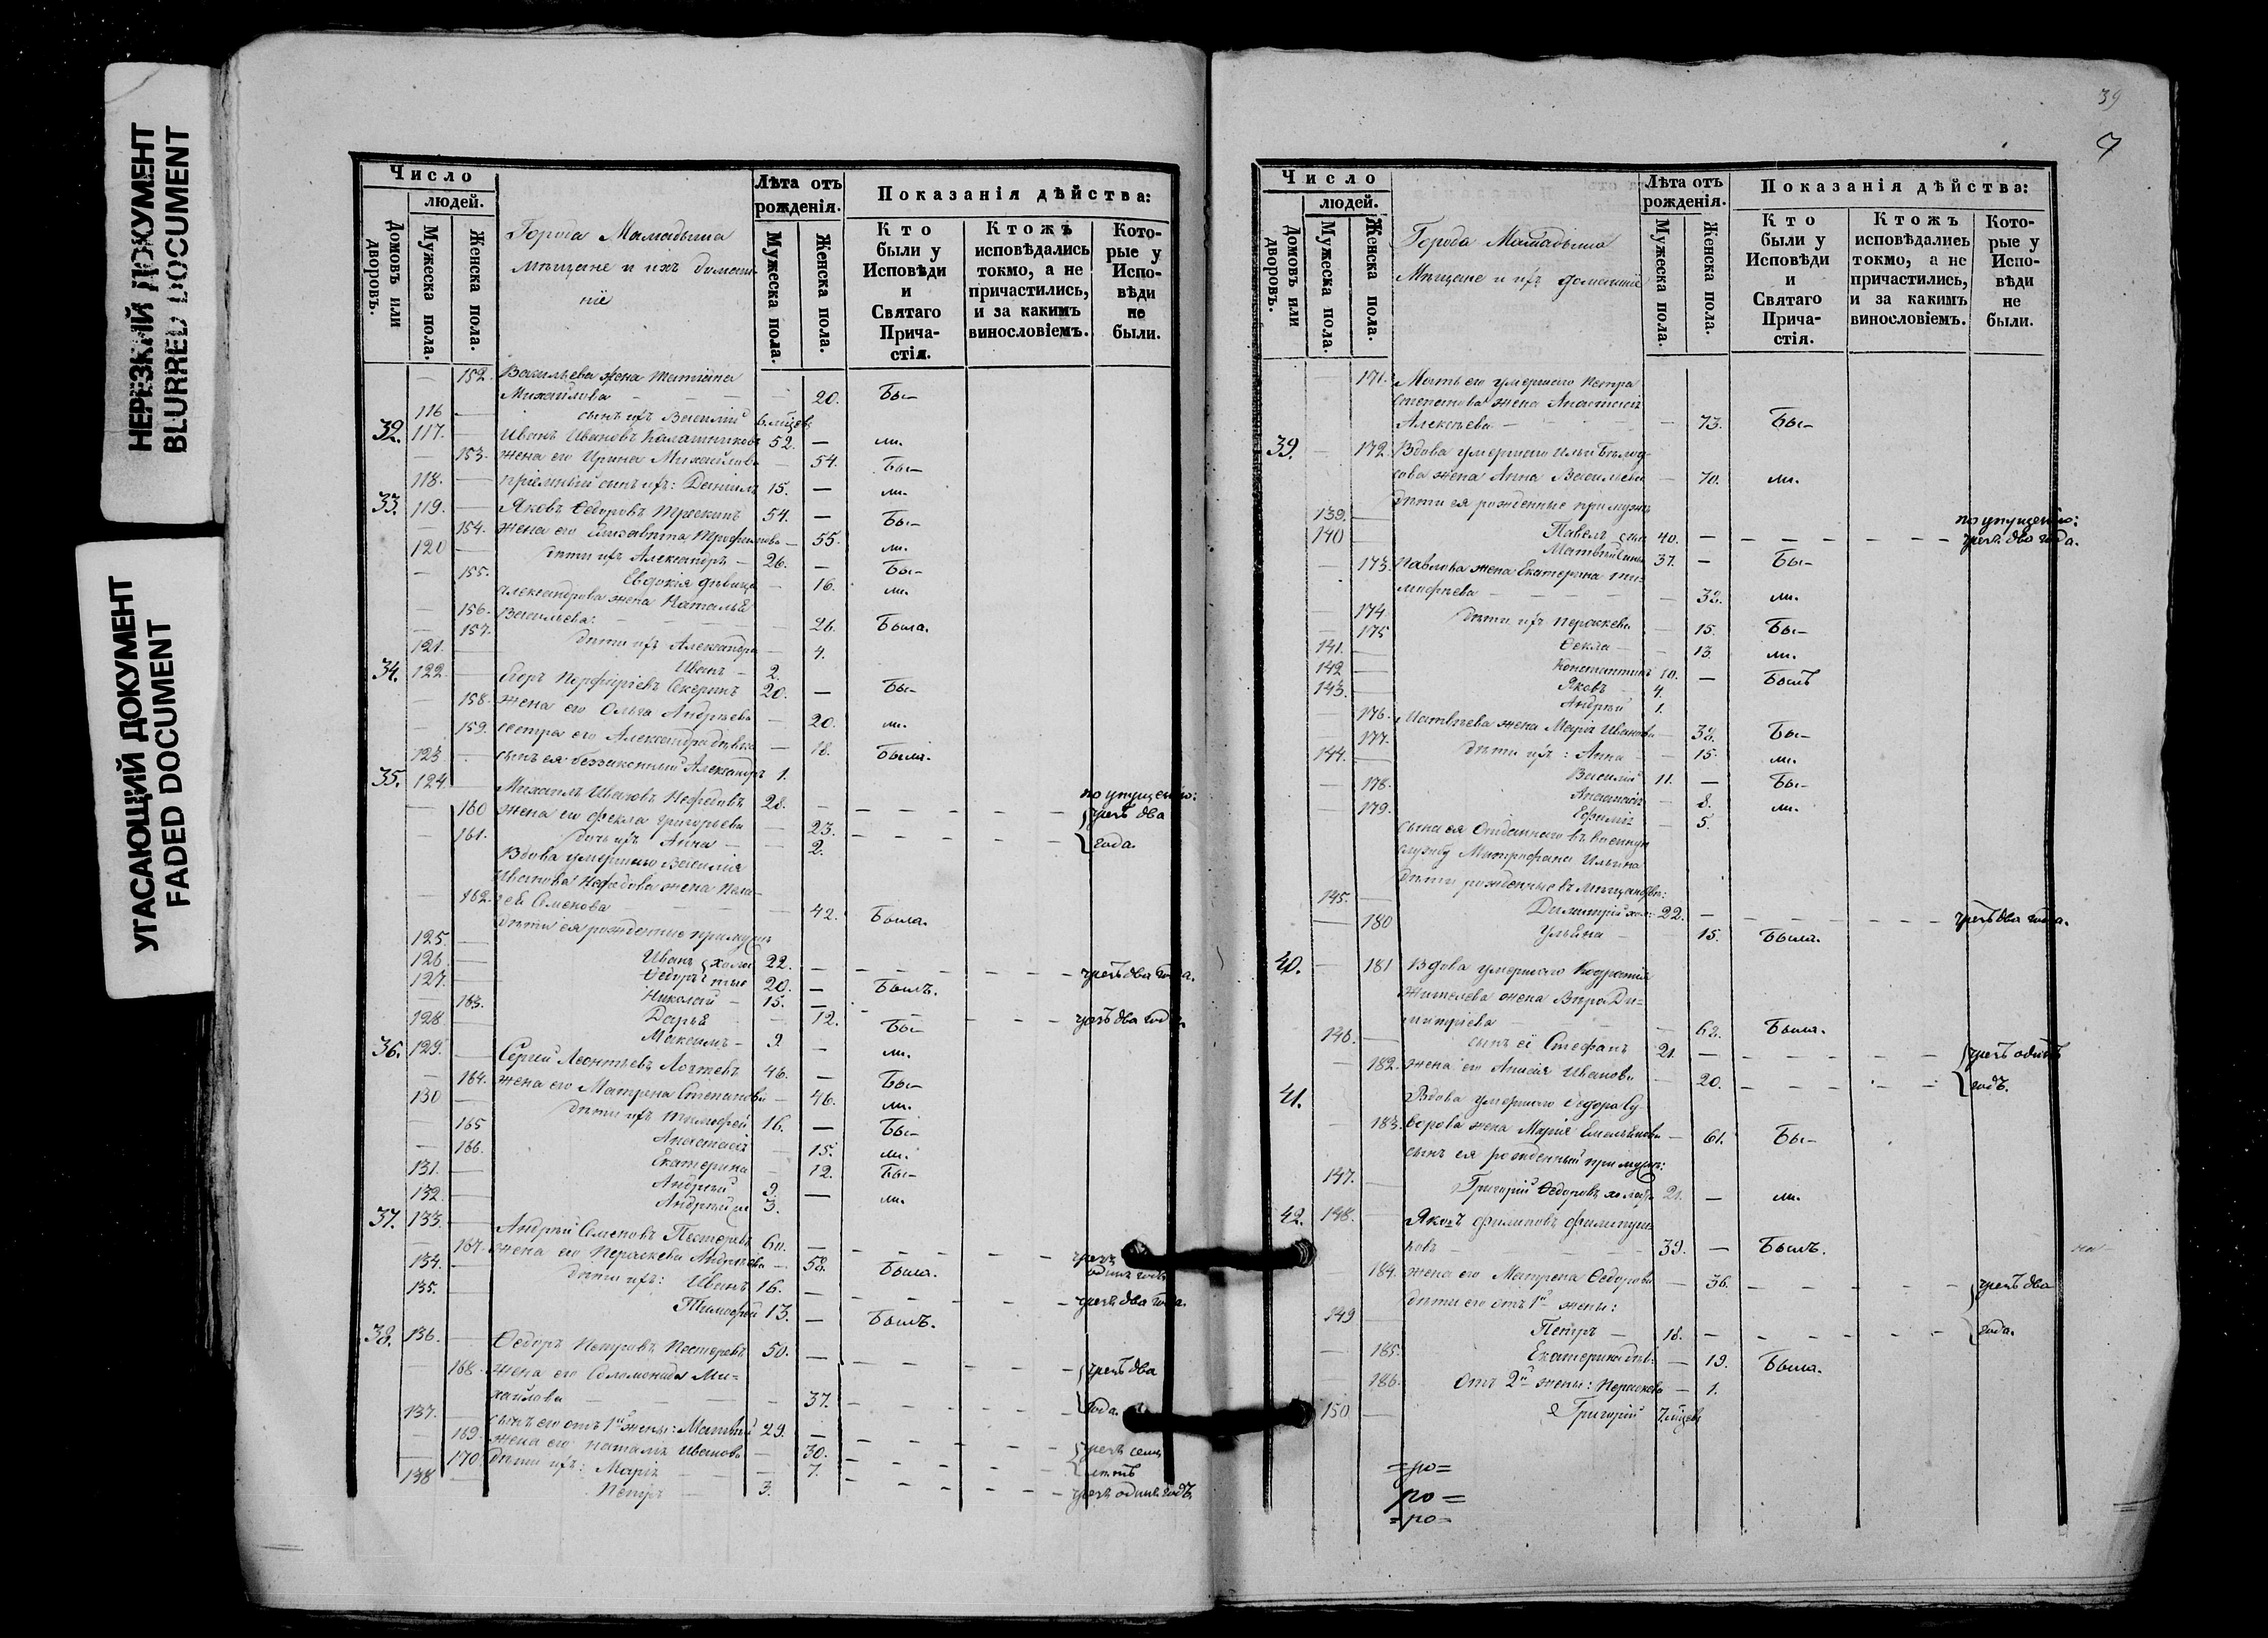 НЕРЕЗКИЙ ДОКУМЕНТ
BLURRED DOCUMENT
УГАСАЮЩИЙ ДОКУМЕНТ
FADED DOCUMENT
Число
людей.
Домовъ или дворовъ.
Мужеска пола.
Женска пола.
Города Мамадыша
мѣщане и ихъ домаш-
нiе
Лѣта отъ рожденія.
Мужеска пола.
Женска пола.
Показанія дѣйства:
Кто были у Исповѣди и Святаго Прича-стія.
Ктожъ исповѣдались токмо, а не причастились, и за какимъ винословіемъ.
Кото-рые у Испо-вѣди не были.
152. Васильева жена Татіана
Михайлова 20. Бы-
116 сынъ ихъ Василій 6. мѣцов
32. 117. Иванъ Ивановъ Калашниковъ 52. ли.
153. жена его Ирина Михайлова 54. Бы-
118. пріемный сынъ ихъ: Даніилъ 15. ли.
33. 119. Яковъ Ѳедоровъ 54. Бы-
154. жена его Елизавета Трофимова 55. ли.
120 дѣти ихъ Александръ 26. Бы-
155. Евдокія дѣвица 16. ли.
Александрова жена Наталья
156. Васильева. 26. Была.
157. дѣти ихъ Александра 4.
121. Иванъ 2.
34. 122. Егоръ Порфиріевъ 20. Бы-
158. жена его Ольга Андрѣева 20. ли.
159. сестра его Александра дѣвка 18. Была.
123 сынъ ея беззаконный Александръ 1.
35. 124. Михаилъ Ивановъ Нефедовъ 28. по упущенію:
160 жена его Фекла Григорьева 23. чрезъ два
161. дочь ихъ Анна 2. года.
Вдова умершаго Василія
Иванова Нефедова жена Пела-
162. гея Семенова 42. Была.
дѣти ея рожденные при мужѣ
125. Иванъ холос 22. чрезъ два года.
126. Ѳедоръ тые 20. Былъ.
127. Николай 15.
163. Дарья 12. чрезъ два года.
128 Максимъ 9. Бы-
36. 129. Сергѣй Леонтьевъ 46. ли.
164. жена его Матрена Степанова 46. Бы-
130 дѣти ихъ Тимофей 16. ли.
165 Анастасія 15. Бы-
166. Екатерина 12. ли.
131. Андрей 9. Бы-
132. Андрей 3. ли.
37. 133. Андрей Семеновъ Пестеревъ 60.
167. жена его Параскева Андрѣева 58. чрезъ одинъ годъ
134. дѣти ихъ: Иванъ 16. Былъ.
135. Тимофей 13. чрезъ два года.
Былъ.
38. 136. Ѳедоръ Петровъ Пестеревъ 50.
168. жена его Соломонида Ми- чрезъ два
хайлова 37. года.
137. сынъ его отъ 1й жены: Матвѣй 29.
169. жена его Наталья Иванова 30. чрезъ семь
170 дѣти ихъ: Марія 7. лѣтъ
138 Петръ 3. чрезъ одинъ годъ.
39
7
Число
людей.
Домовъ или дворовъ.
Мужеска пола.
Женска пола.
Города Мамадыша
Мѣщане и ихъ домашніе
Лѣта отъ рожденія.
Мужеска пола.
Женска пола.
Показанія дѣйства:
Кто были у Исповѣди и Святаго Прича-стія.
Ктожъ исповѣдались токмо, а не причастились, и за какимъ винословіемъ.
Кото-рые у Испо-вѣди не были.
171. Мать его умершаго Петра
Степанова жена Анастасія
Алексѣева 73. Бы-
39. 172. Вдова умершаго Ильи
жена Анна Васильева 70. ли.
дѣти ея рожденные при мужѣ
139. Павелъ 40. по упущенію: чрезъ два года.
140 Матвѣй 37. Бы-
173. Павлова жена Екатерина Ти-
мофеева 38. ли.
174 дѣти ихъ Параскева 15. Бы-
175 Ѳекла 13. ли.
141. Константинъ 10. Былъ
142 Яковъ 4.
143. Андрей 1.
176. Матвѣева жена Марія Иванова 38. Бы-
177. дѣти ихъ: Анна 15. ли.
144. Василій 11. Бы-
178. Анастасія 8. ли.
179. Ефимія 5.
сына ея отданнаго въ военную
службу Митрофана Ильина
дѣти рожденные въ мѣщанствѣ:
145. Димитрій хол: 22. чрезъ два года.
180 Ульяна 15. Была.
40. 181 Вдова умершаго Кодратія
Жителева жена Вѣра Ди=
митріева 62. Была.
146. сынъ её Стефанъ 21. чрезъ одинъ
182. жена его Анисія Иванова 20. годъ.
41. Вдова умершаго Ѳедора Су-
183. ворова жена Марія Емельянова 61. Бы-
сынъ ея рожденный при мужѣ:
147. Григорій Ѳедоровъ холост 21. ли.
42. 148. Яковъ Филиповъ Филипуш-
ковъ 39. Былъ.
184. жена его Матрена Ѳедорова 36. чрезъ два
дѣти его отъ 1й жены:
149 Петръ 18. года.
185. Екатерина дѣв: 19. Была.
186. Отъ 2й жены: Параскева 1.
150 Григорій 7. мѣцов
=ро=
ро=
=ро=